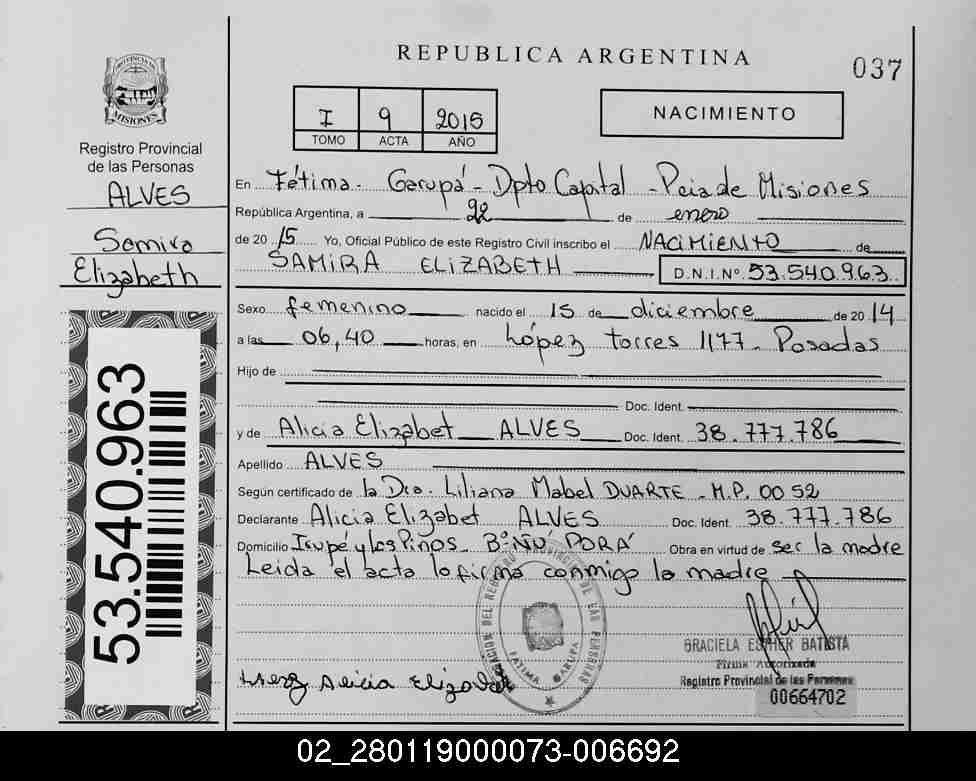 REPUBLICA ARGENTINA
037
PROVINCIA DE
MISIONES
Registro Provincial
de las Personas
ALVES
Samira
Elizabeth
53.540.963
I 9 2015
TOMO ACTA AÑO
NACIMIENTO
En Fátima - Garupá - Dpto Capital - Pcia de Misiones
República Argentina, a 22 de enero
de 2015 Yo, Oficial Público de este Registro Civil inscribo el NACIMIENTO de
SAMIRA ELIZABETH D.N.I.Nº 53.540.963
Sexo femenino nacido el 15 de diciembre de 2014
a las 06,40 horas, en López torres 1177 - Posadas
Hijo de
Doc. Ident.
y de Alicia Elizabet ALVES Doc. Ident. 38.777.786
Apellido ALVES
Según certificado de la Dra. Liliana Mabel DUARTE - M.P. 0052
Declarante Alicia Elizabet ALVES Doc. Ident. 38.777.786
Domicilio Irupé y los Pinos - Bº ÑU PORÁ Obra en virtud de ser la madre
Leida el acta lo firma conmigo la madre
FATIMA - GARUPA
Alicia Elizabet
GRACIELA ESTHER BATISTA
Firma Autorizada
Registro Provincial de las Personas
00664702
02_280119000073-006692